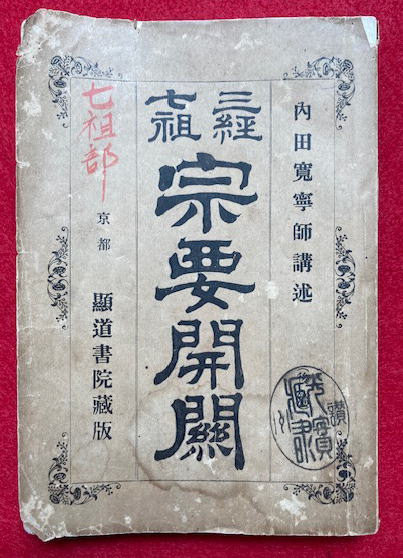 內田寬寧師講述
三經
七祖
宗要開關
京都 顯道書院藏版
七祖部